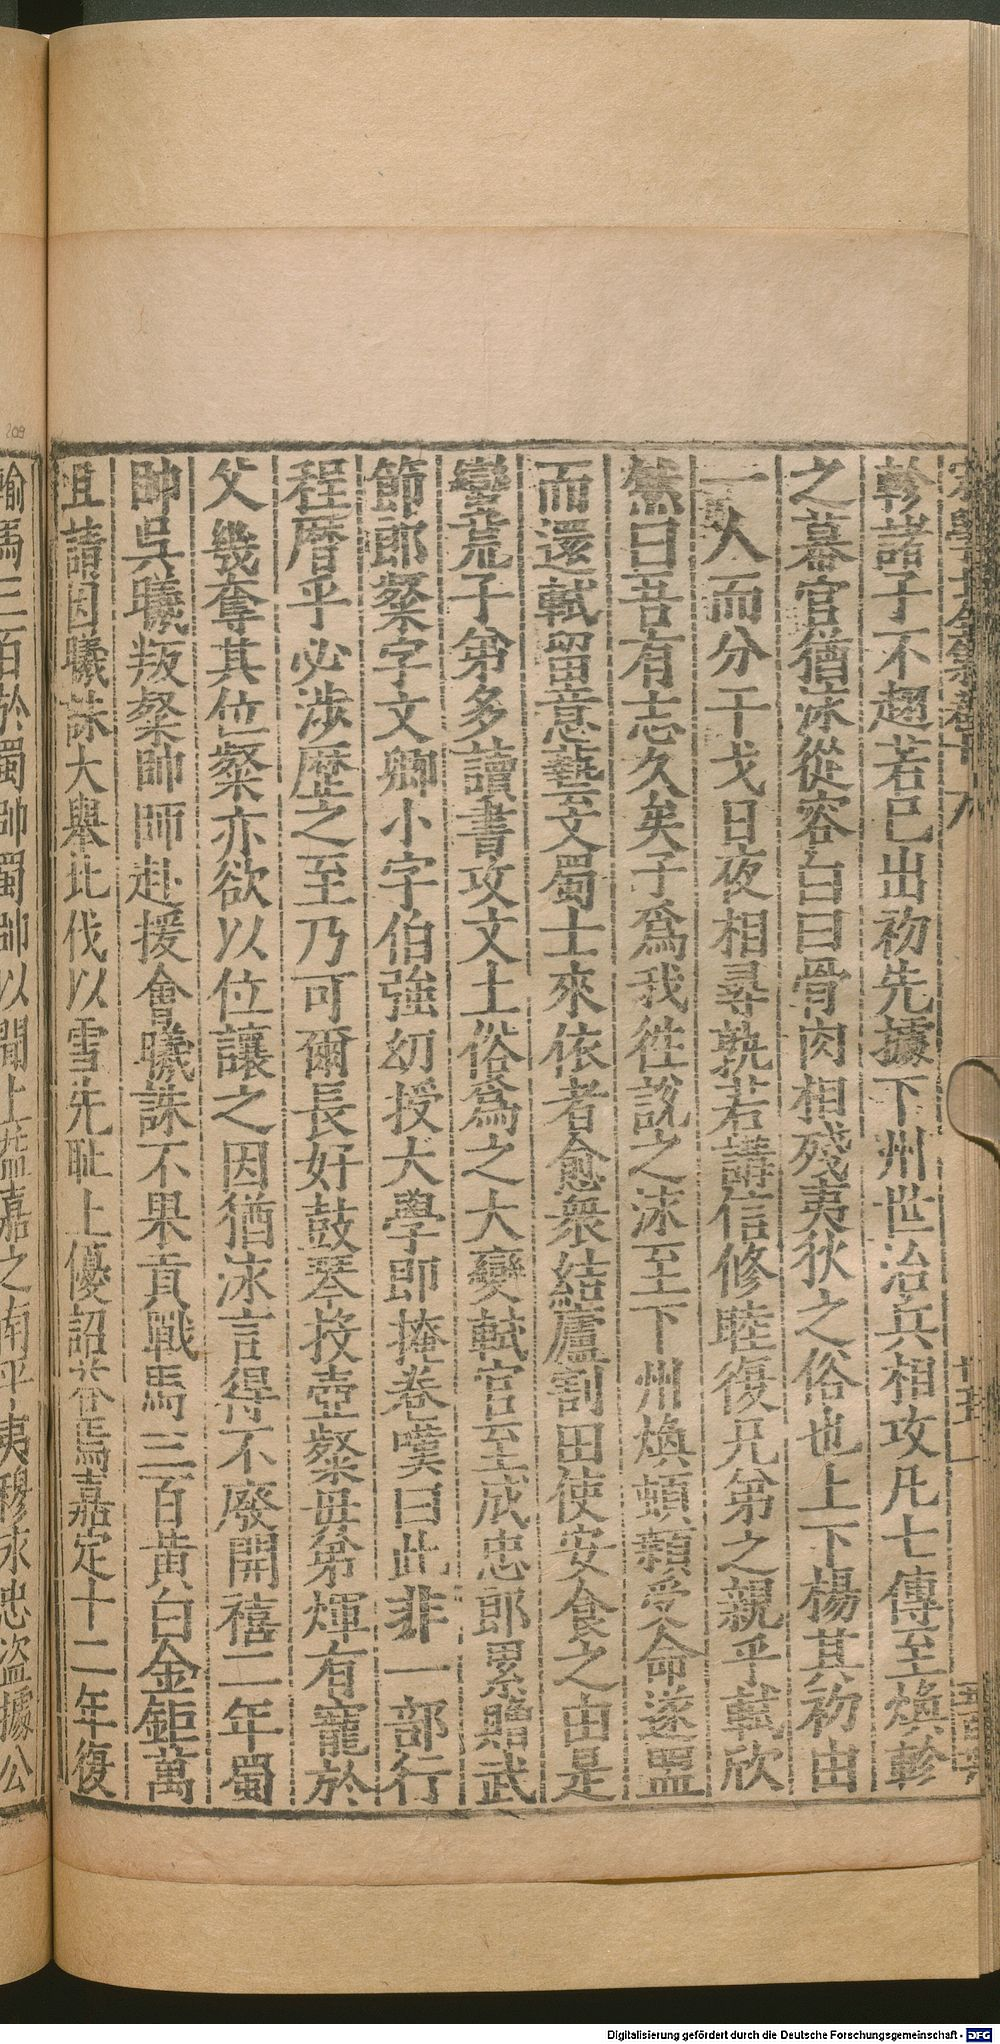 軫諸子不趐若已出初先據下州世治兵相攻凡七傳至煥軫
之幕官猶泳從容白曰骨肉相殘夷狄之俗也上下楊其初由
一人而分干戈日夜相尋孰若講信修睦復兄弟之親乎軾欣
然曰吾有志久矣子爲我徃說之泳至下州煥頓顙受命遂盟
而還軾留意藝文蜀士來依者愈衆結廬割田使安食之由是
蠻荒子弟多讀書攻文土俗爲之大變軾官至成忠郎累贈武
節郎粲字文卿小字伯強幼授大學即掩卷嘆曰此非一部行
程曆乎必涉歷之至乃可爾長好鼓琴投壺粲毋弟煇有寵於
父幾奪其位粲亦欲以位讓之因猶泳言得不廢開禧二年蜀
帥吳曦叛粲帥師赴援會曦誅不果貢戰馬三百黃白金鉅萬
且請因曦誅大舉北伐以雪先耻上優詔荅焉嘉定十二年復
輸馬三百於蜀帥蜀帥以聞上益嘉之南平夷穆永忠盜據公
Digitalisierung gefördert durch die Deutsche Forschungsgemeinschaft - DFG